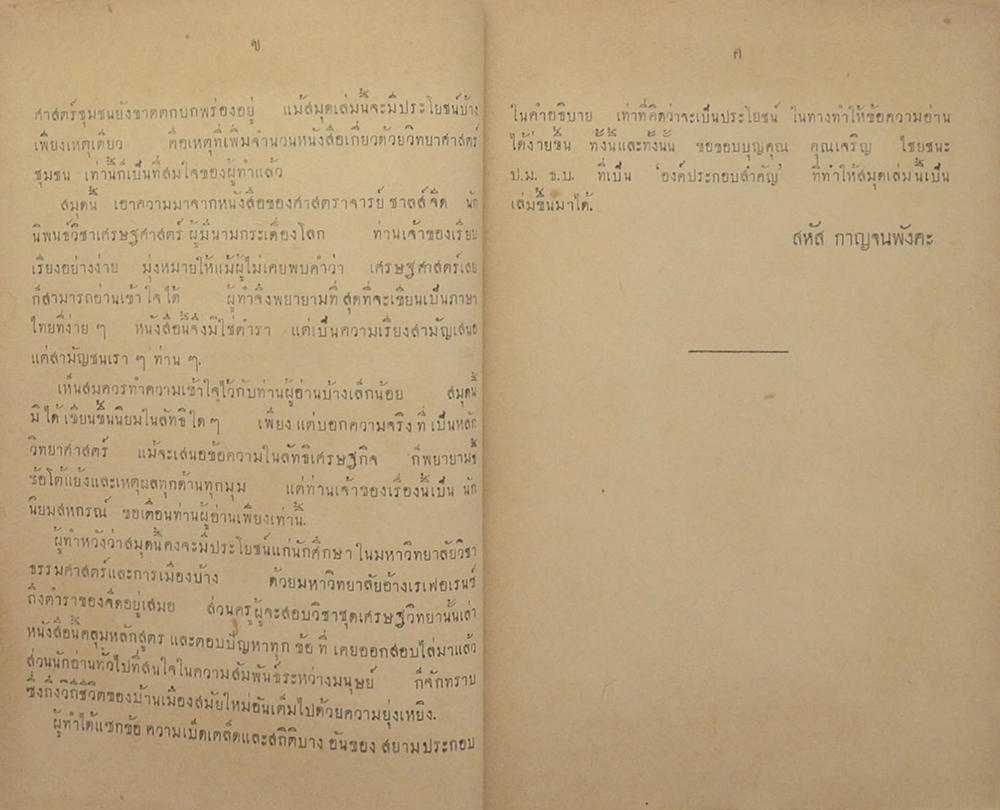 ข
ศาสตร์ชุมชนยังขาดตกบกพร่องอยู่ แม้สมุดเล่มนี้จะมีประโยชน์บ้าง
เพียงเหตุเดียว คือเหตุที่เพิ่มจำนวนหนังสือเกี่ยวด้วยวิทยาศาสตร์
ชุมชน เท่านี้ก็เป็นที่สมใจของผู้ทำแล้ว
สมุดนี้ เอาความมาจากหนังสือของศาสตราจารย์ ชาลส์ จีด นัก
นิพนธ์วิชาเศรษฐศาสตร์ ผู้มีนามกระเดื่องโลก ท่านเจ้าของเรียบ
เรียงอย่างง่าย มุ่งหมายให้แม้ผู้ไม่เคยพบคำว่า เศรษฐศาสตร์เลย
ก็สามารถอ่านเข้าใจได้ ผู้ทำจึงพยายามที่สุดที่จะเขียนเป็นภาษา
ไทยที่ง่าย ๆ หนังสือนี้จึงมิใช่ตำรา แต่เป็นความเรียงสามัญเสนอ
แด่สามัญชนเรา ๆ ท่าน ๆ.
เห็นสมควรทำความเข้าใจไว้กับท่านผู้อ่านบ้างเล็กน้อย สมุดนี้
มิได้เขียนขึ้นนิยมในลัทธิใด ๆ เพียงแต่บอกความจริงที่เป็นหลัก
วิทยาศาสตร์ แม้จะเสนอข้อความในลัทธิเศรษฐกิจ ก็พยายามชี้
ข้อโต้แย้งและเหตุผลทุกด้านทุกมุม แต่ท่านเจ้าของเรื่องนี้เป็น นัก
นิยมสหกรณ์ ขอเตือนท่านผู้อ่านเพียงเท่านี้.
ผู้ทำหวังว่าสมุดนี้คงจะมีประโยชน์แก่นักศึกษาในมหาวิทยาลัยวิชา
ธรรมศาสตร์และการเมืองบ้าง ด้วยมหาวิทยาลัยอ้างเรเฟอเรนซ์
ถึงตำราของจีดอยู่เสมอ ส่วนครูผู้จะสอบวิชาชุดเศรษฐวิทยานั้นเล่า
หนังสือนี้คลุมหลักสูตร และตอบปัญหาทุก ข้อ ที่ เคยออกสอบไล่มาแล้ว
ส่วนนักอ่านทั่วไปที่สนใจในความสัมพันธ์ระหว่างมนุษย์ ก็จักทราบ
ซึ่งถึงวิถีชีวิตของบ้านเมืองสมัยใหม่อันเต็มไปด้วยความยุ่งเหยิง.
ผู้ทำได้แซกข้อ ความเบ็ดเตล็ดและสถิติบาง อันของ สยามประกอบ
ค
ในคำอธิบาย เท่าที่คิดว่าจะเป็นประโยชน์ ในทางทำให้ข้อความอ่าน
ได้ง่ายขึ้น ทั้งนี้และทั้งนั้น ขอขอบบุญคุณ คุณเจริญ ไชยชนะ
ป.ม. ธ.บ. ที่เป็น 'องค์ประกอบสำคัญ' ที่ทำให้สมุดเล่มนี้เป็น
เล่มขึ้นมาได้.
สหัส กาญจนพังคะ